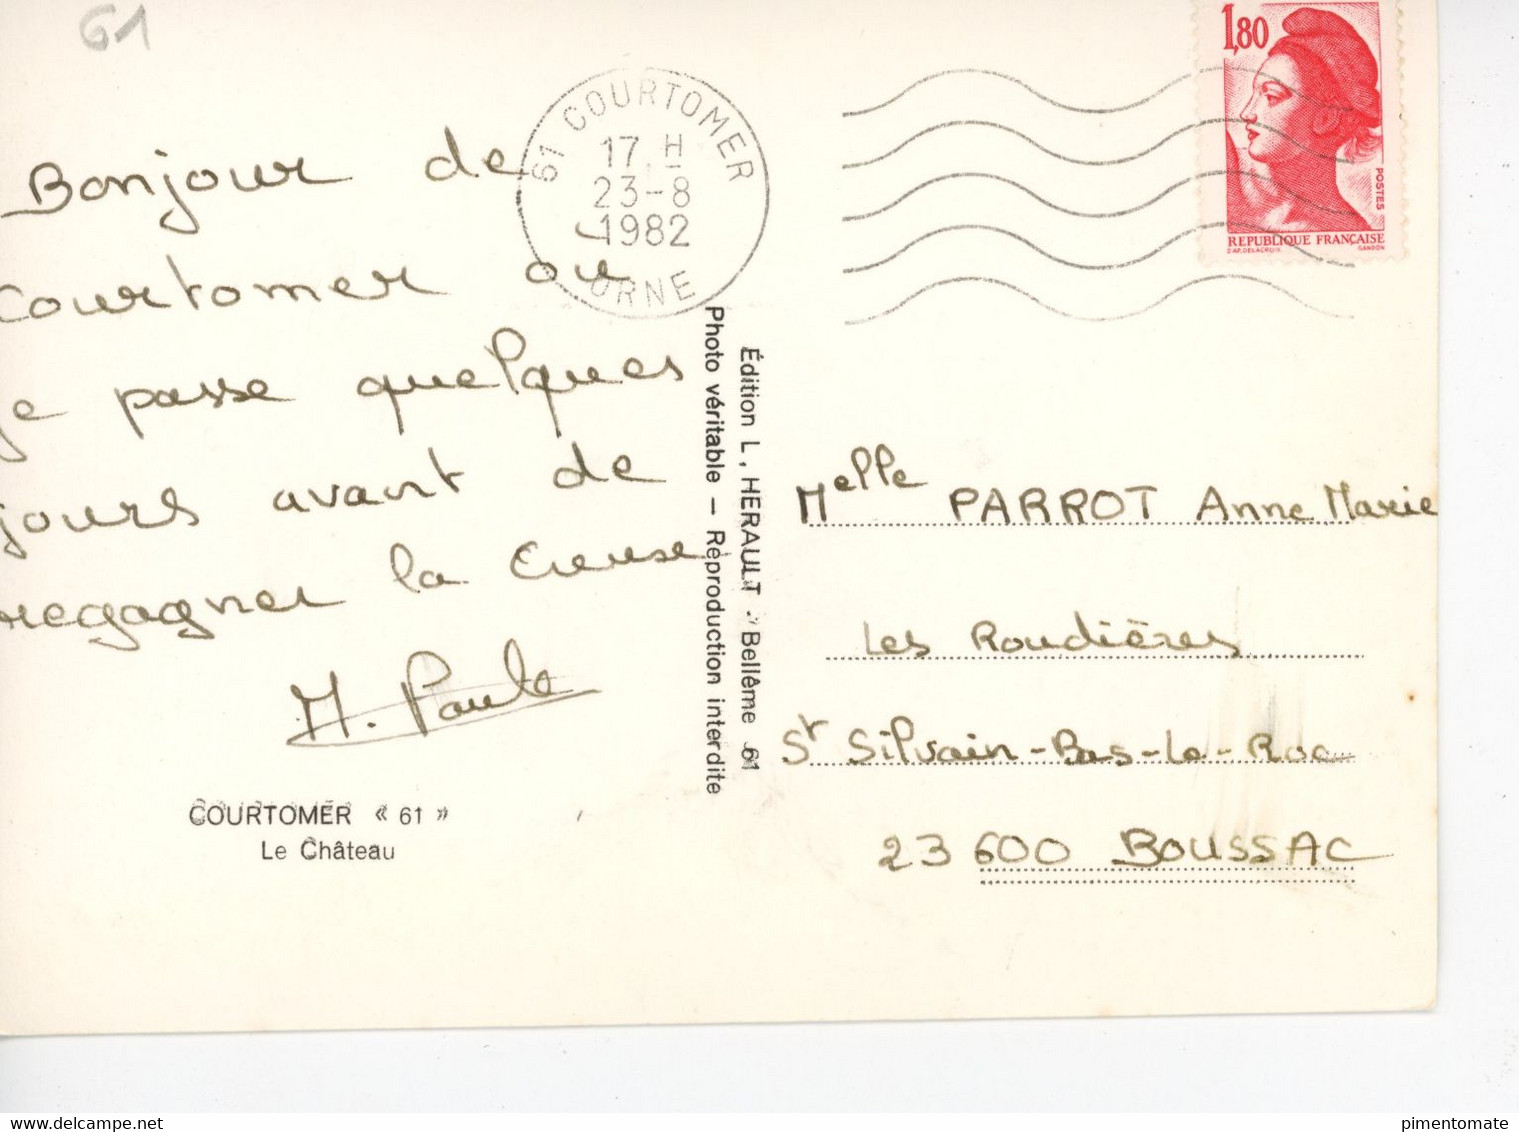 61
Bonjour de
Courtomer où
je passe quelques
jours avant de
regagner la Creuse
M. Paule
COURTOMER « 61 »
Le Château
61 COURTOMER
17 H
23-8
1982
ORNE
Édition L. HERAULT - Bellême 61
Photo véritable — Réproduction interdite
1,80
POSTES
REPUBLIQUE FRANÇAISE
D'AP. DELACROIX GANDON
Melle PARROT Anne Marie
Les Roudières
St Silvain-Bas-Le-Roc
23 600 BOUSSAC
www.delcampe.net
pimentomate